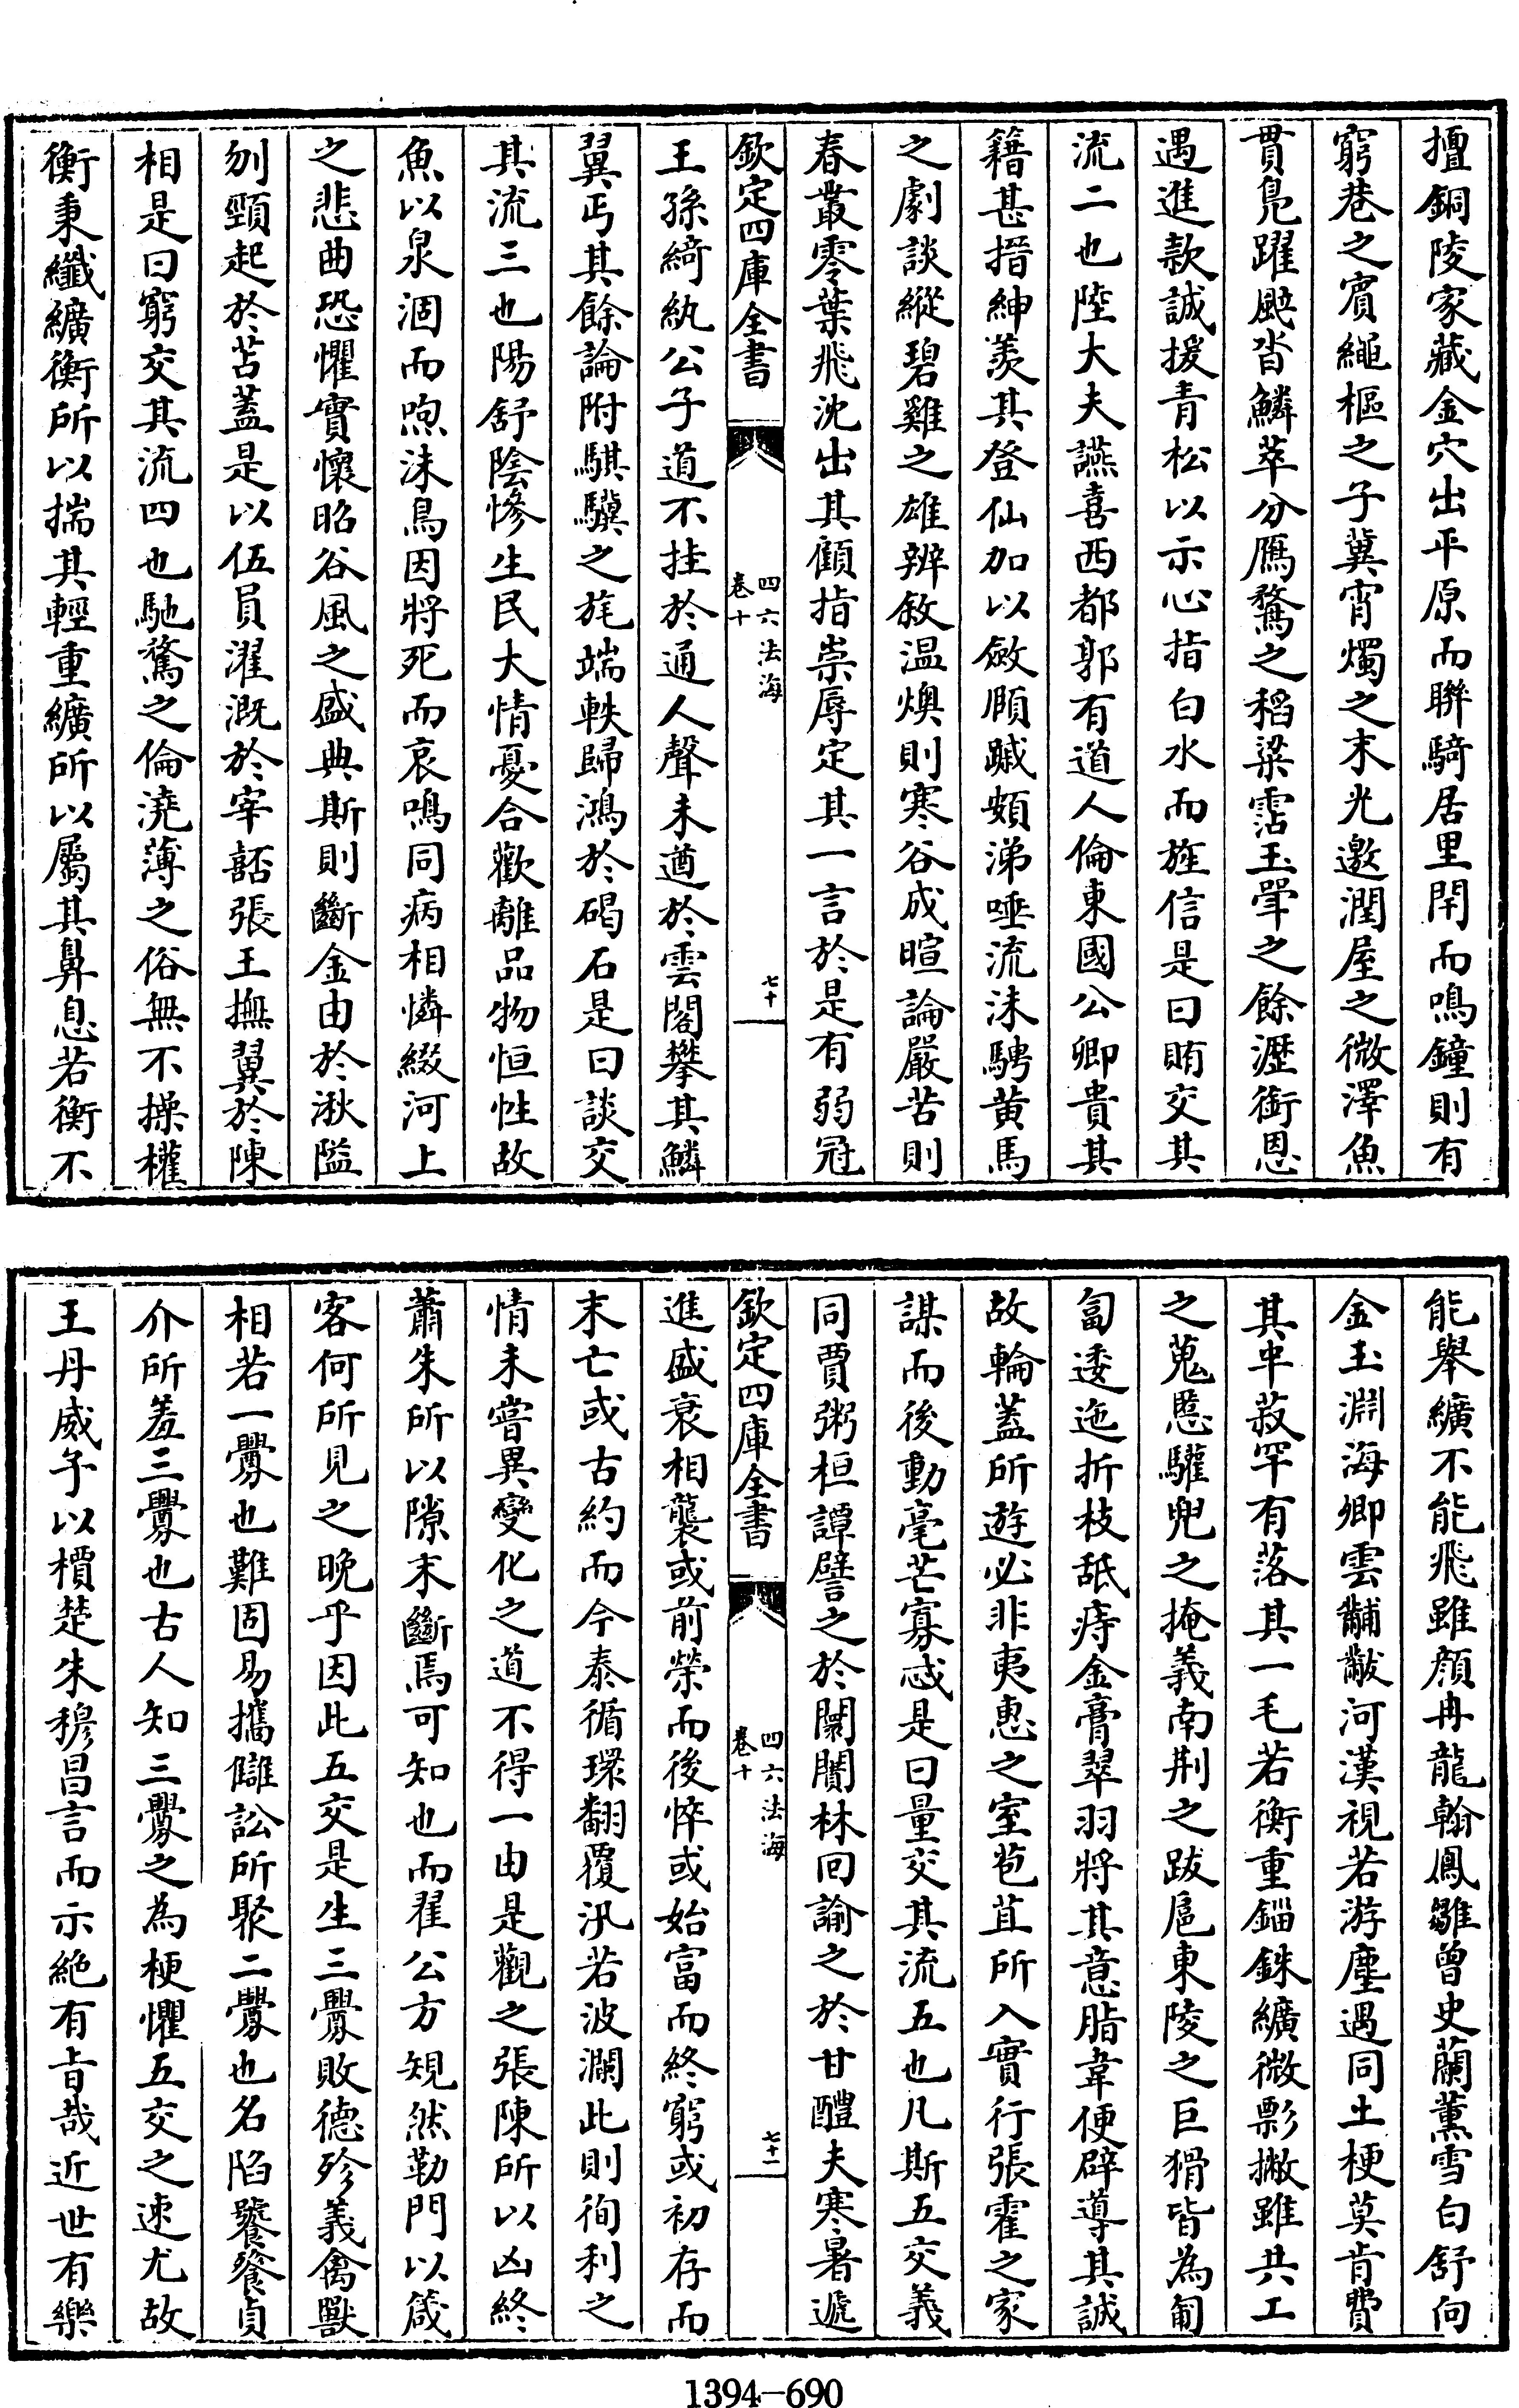 擅銅陵家藏金穴出平原而聯騎居里閈而鳴鐘則有
窮巷之賓繩樞之子冀宵燭之末光邀潤屋之微澤魚
貫鳧躍颯沓鱗萃分鴈鶩之稻粱霑玉斝之餘瀝銜恩
遇進款誠援青松以示心指白水而旌信是曰賄交其
流二也陸大夫讌喜西都郭有道人倫東國公卿貴其
籍甚搢紳羨其登仙加以斂頤蹙頞涕唾流沫騁黃馬
之劇談縱碧雞之雄辨敘溫燠則寒谷成暄論嚴苦則
春叢零葉飛沈出其顧指崇辱定其一言於是有弱冠
欽定四庫全書
四六法海
卷十
七十
王孫綺紈公子道不挂於通人聲未遒於雲閣攀其鱗
翼丐其餘論附騏驥之旄端軼歸鴻於碣石是曰談交
其流三也陽舒陰慘生民大情憂合歡離品物恒性故
魚以泉涸而煦沫鳥因將死而哀鳴同病相憐綴河上
之悲曲恐懼寘懷昭谷風之盛典斯則斷金由於湫隘
刎頸起於苫蓋是以伍員濯溉於宰嚭張王撫翼於陳
相是曰窮交其流四也馳騖之倫澆薄之俗無不操權
衡秉纖纊衡所以揣其輕重纊所以屬其鼻息若衡不
能舉纊不能飛雖顏冉龍翰鳳雛曾史蘭薰雪白舒向
金玉淵海卿雲黼黻河漢視若游塵遇同土梗莫肯費
其半菽罕有落其一毛若衡重錙銖纊微彯撇雖共工
之蒐慝驩兜之掩義南荆之跋扈東陵之巨猾皆為匍
匐逶迤折枝舐痔金膏翠羽將其意脂韋便辟導其誠
故輪蓋所遊必非夷惠之室苞苴所入實行張霍之家
謀而後動毫芒寡忒是曰量交其流五也凡斯五交義
同賈粥桓譚譬之於闤闠林回諭之於甘醴夫寒暑遞
欽定四庫全書
四六法海
卷十
七十一
進盛衰相襲或前榮而後悴或始富而終窮或初存而
末亡或古約而今泰循環翻覆汎若波瀾此則徇利之
情未嘗異變化之道不得一由是觀之張陳所以凶終
蕭朱所以隙末斷焉可知也而翟公方規然勒門以箴
客何所見之晚乎因此五交是生三釁敗德殄義禽獸
相若一釁也難固易攜讎訟所聚二釁也名陷饕餮貞
介所羞三釁也古人知三釁之為梗懼五交之速尤故
王丹威子以檟楚朱穆昌言而示絕有旨哉近世有樂
1394—690